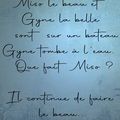 Miso le beau et
Gyne la belle
sont sur un bateau
Gyne tombe à l'eau.
Que fait Miso ?
Il continue de faire
le beau.